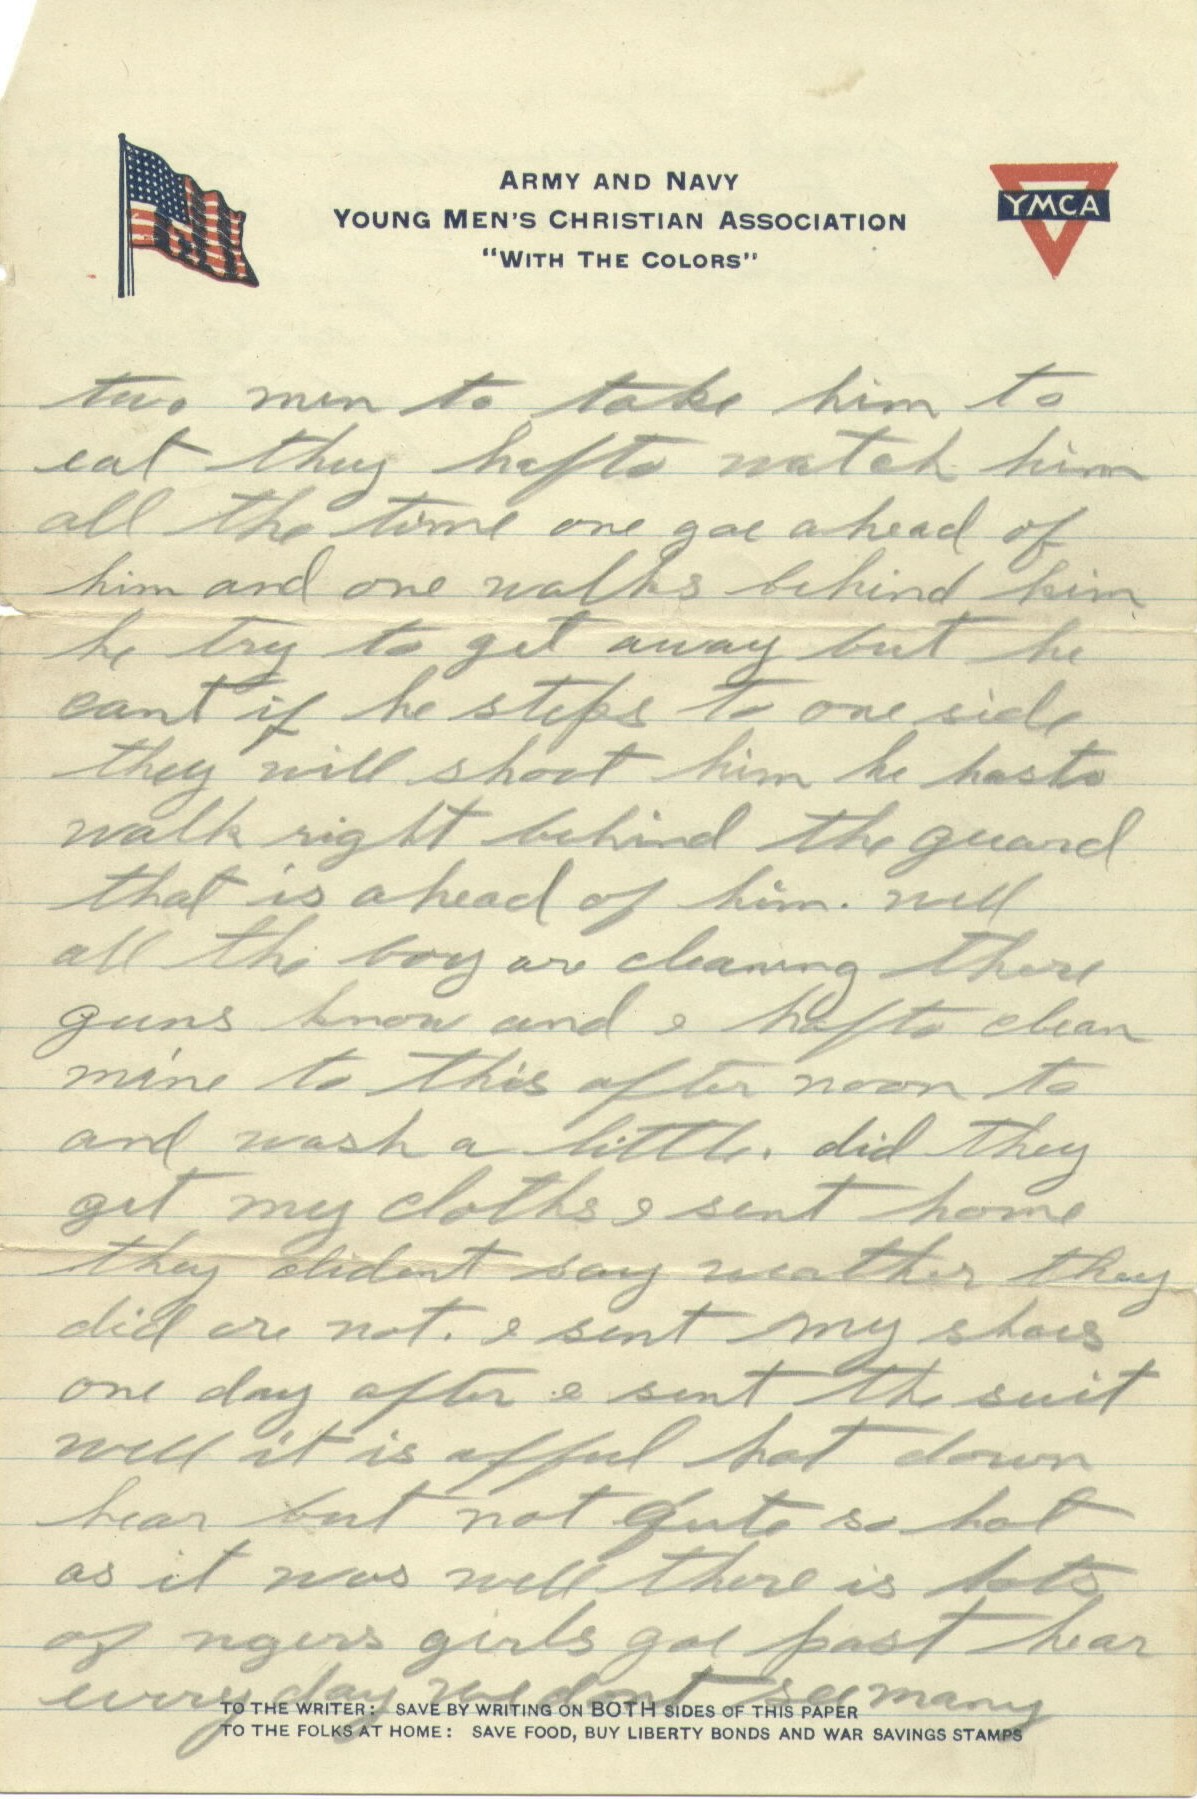 ARMY AND NAVY
YOUNG MEN'S CHRISTIAN ASSOCIATION
"WITH THE COLORS"
YMCA
two men to take him to
eat they hafto watch him
all the time one goe ahead of
him and one walks behind him
he try to get away but he
cant if he steps to one side
they will shoot him he hasto
walk right behind the guard
that is ahead of him. well
all the boy are cleaning there
guns know and i hafto clean
mine to this after noon to
and wash a little. did they
get my cloths i sent home
they dident say weather they
did ore not. i sent my shoes
one day after i sent the suit
well it is afful hot down
hear but not qute so hot
as it was well there is lots
of nigers girls goe past hear
every day we dont see many
TO THE WRITER: SAVE BY WRITING ON BOTH SIDES OF THIS PAPER
TO THE FOLKS AT HOME: SAVE FOOD, BUY LIBERTY BONDS AND WAR SAVINGS STAMPS